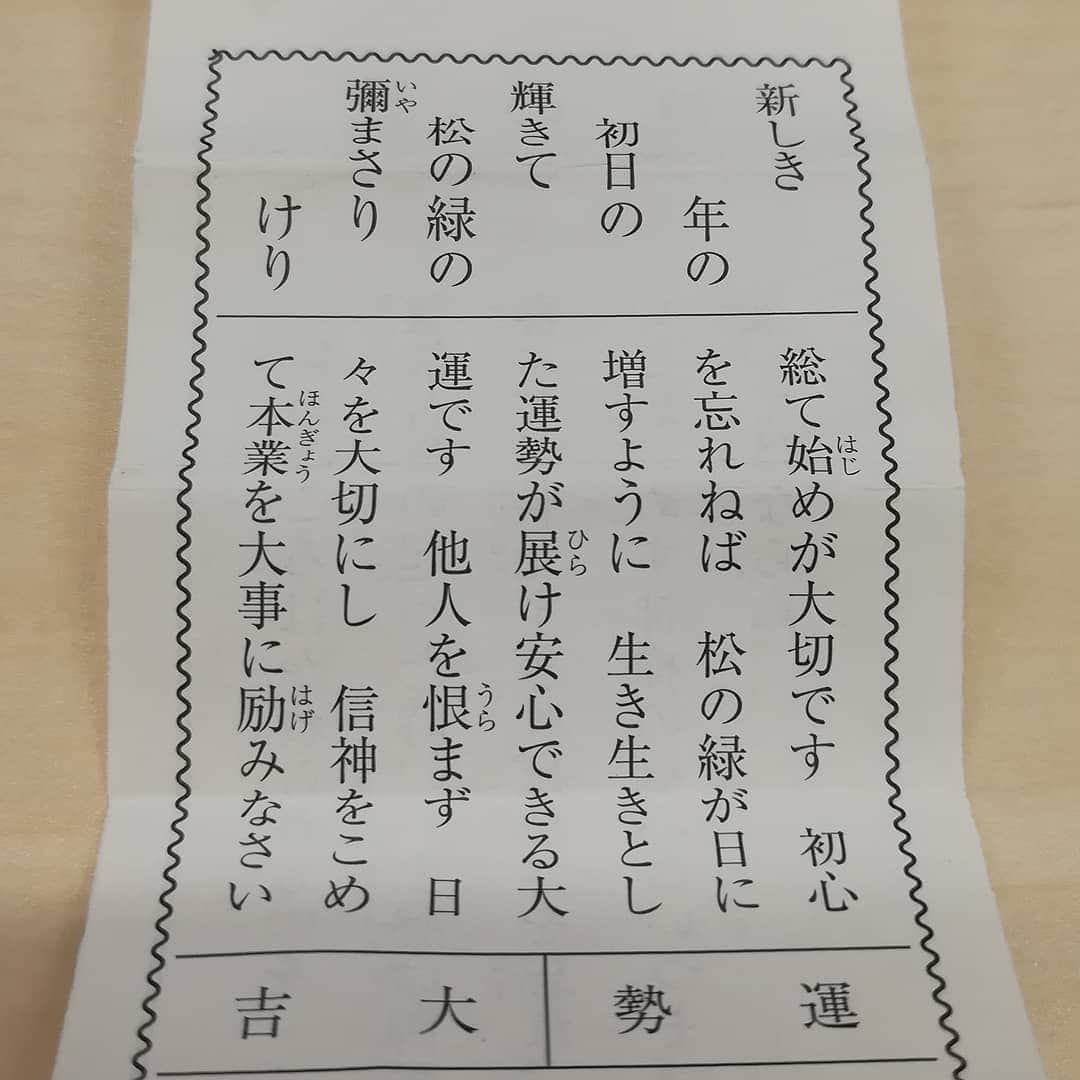 新しき
年の
初日の
輝きて
松の緑の
彌まさり
いや
けり
総て始めが大切です　初心
はじ
を忘れねば　松の緑が日に
増すように　生き生きとし
た運勢が展け安心できる大
ひら
運です　他人を恨まず　日
うら
々を大切にし　信神をこめ
て本業を大事に励みなさい
ほんぎょう
はげ
運勢
大吉